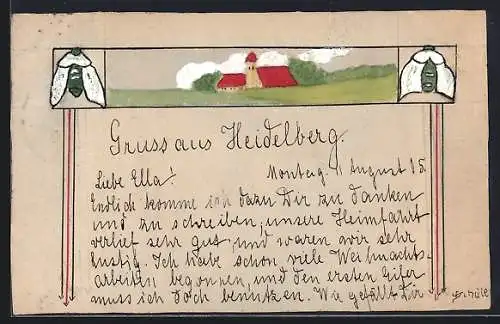 Gruss aus Heidelberg.
Liebe Ella! Montag, August 15.
Endlich komme ich dazu Dir zu danken
und zu schreiben, unsere Heimfahrt
verlief sehr gut, und waren wir sehr
lustig. Ich habe schon viele Weihnachts-
arbeiten begonnen, und den ersten Eifer
muss ich doch benützen. Wie gefällt Dir